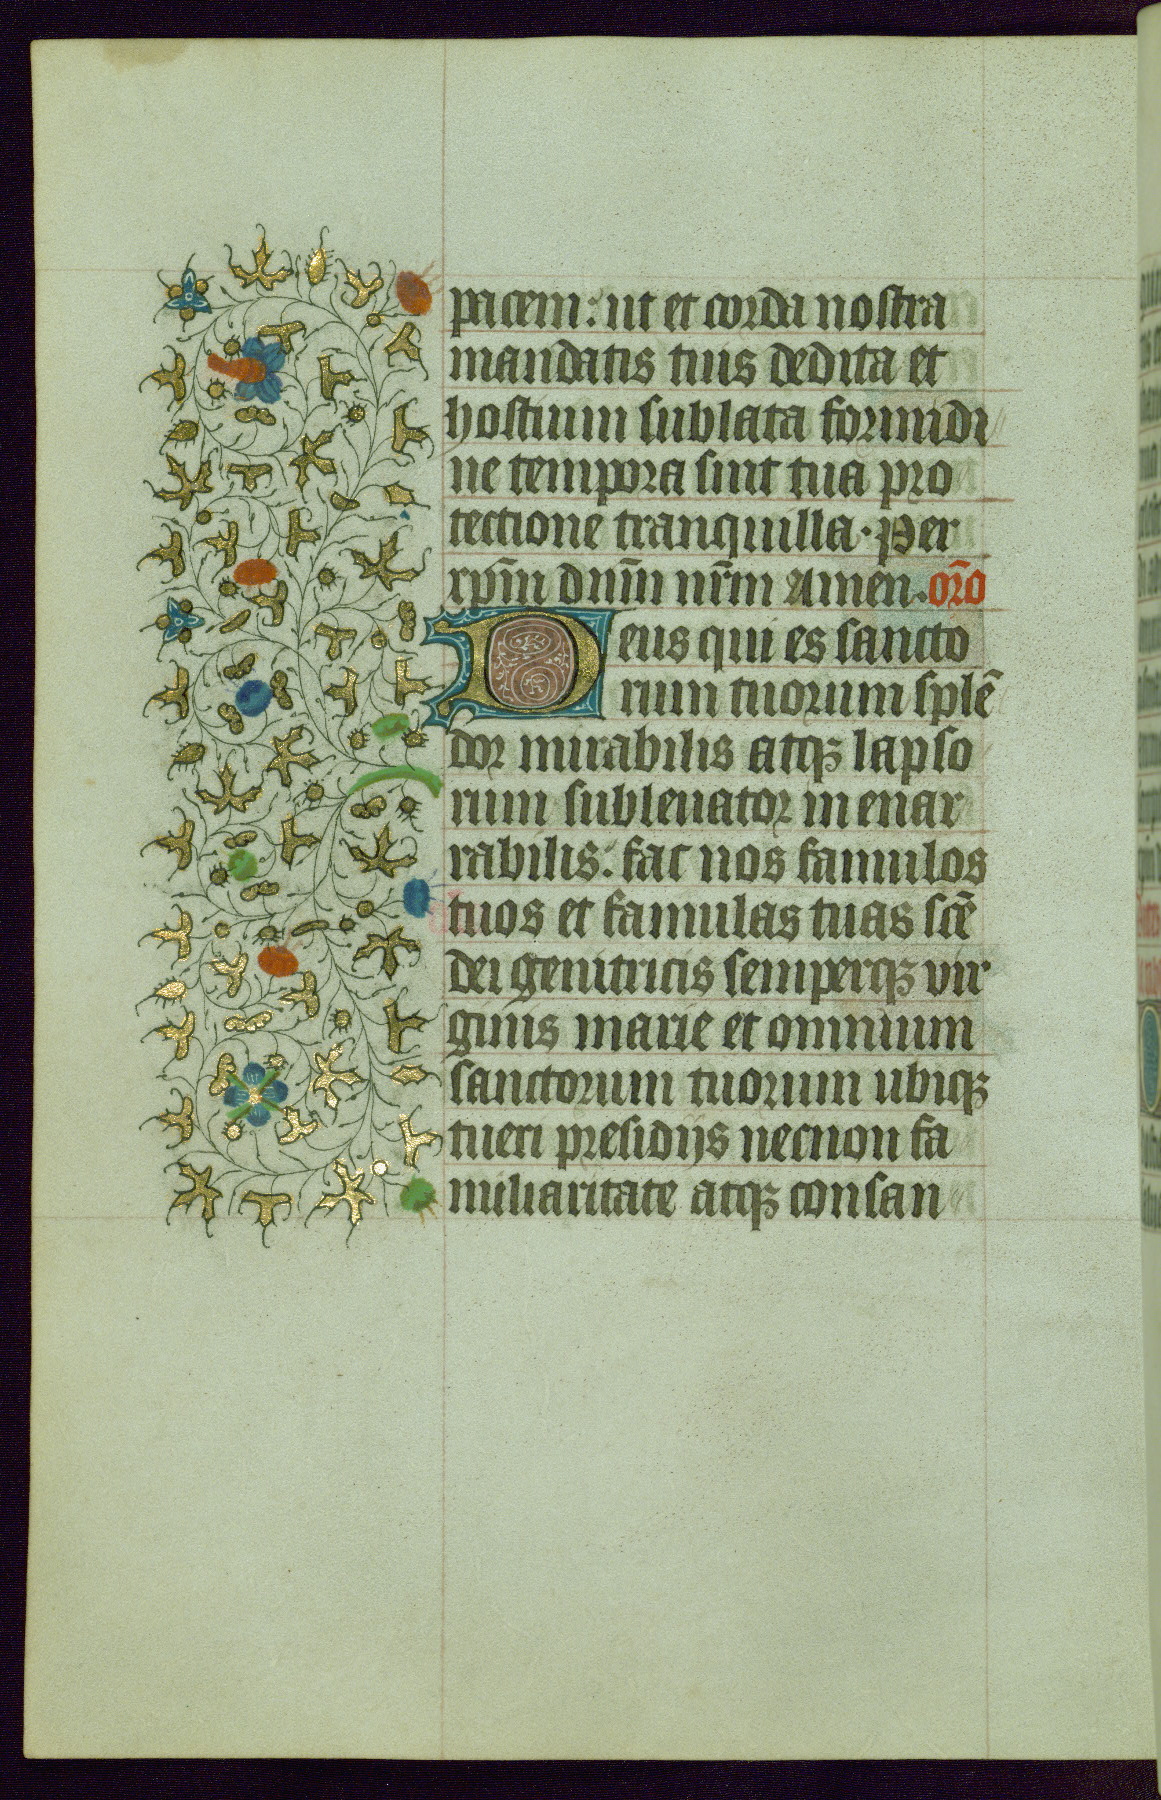 pacem: ut et corda nostra
mandatis tuis dedita et
hostium sublata formidi
ne tempora sint tua pro
tectione tranquilla. Per
xp̄m dnm̄ nr̄m Amen. or̄o
Deus qui es sancto
rum tuorum splē
dor mirabilis atqꝫ lapso
rum subleuator in enar
rabilis: fac nos famulos
tuos et famulas tuas scē
dei genitricis semperqꝫ vir
ginis marie et omnium
sanctorum tuorum ubiqꝫ
tueri presidijs necnon fa
miliaritate atqꝫ consan